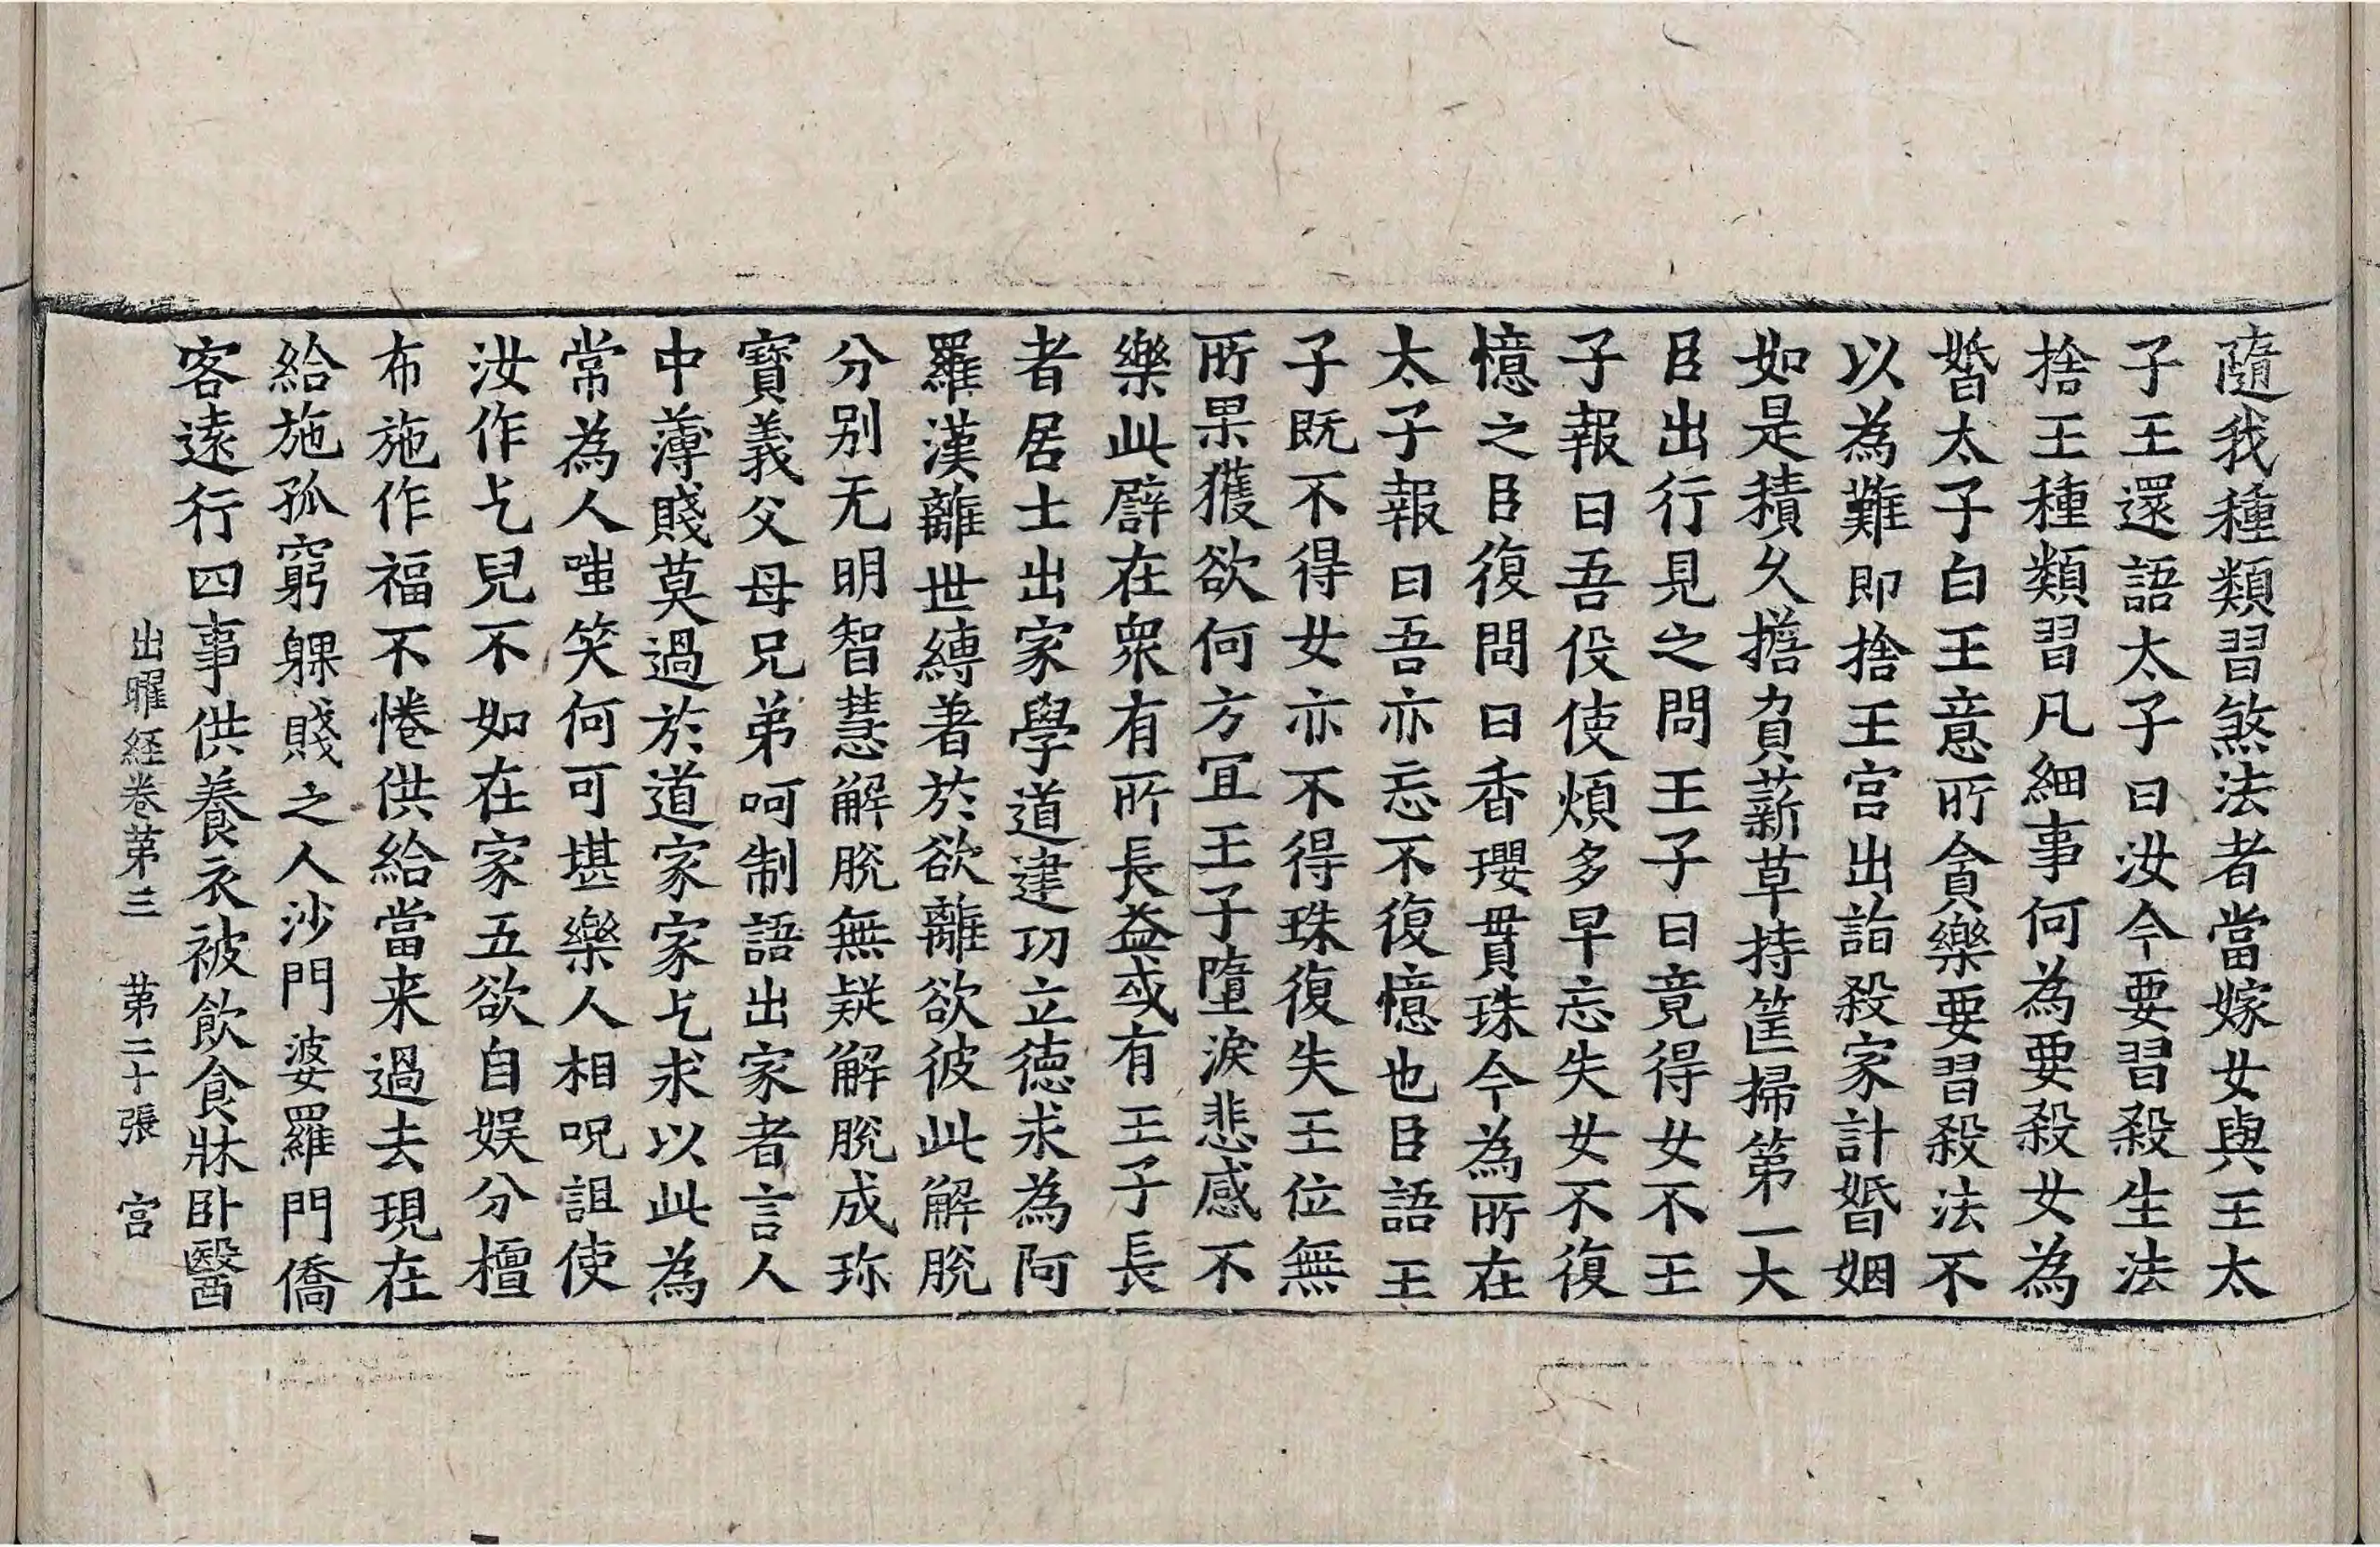 隨我種類習煞法者當嫁女與王太
子王還語太子曰汝今要習殺生法
捨王種類習凡細事何為要殺女為
婚太子白王意所貪樂要習殺法不
以為難即捨王宮出詣殺家計婚姻
如是積久擔負薪草持筐掃第一大
臣出行見之問王子曰竟得女不王
子報曰吾伇使煩多早忘失女不復
憶之臣復問曰香瓔貫珠今為所在
太子報曰吾亦忘不復憶也臣語王
子既不得女亦不得珠復失王位無
所果獲欲何方冝王子墮淚悲感不
樂此譬在衆有所長益或有王子長
者居士出家學道建功立德求為阿
羅漢離世縛著於欲離欲彼此解脫
分别无明智慧解脫無疑解脫成珎
寶義父母兄弟呵制語出家者言人
中薄賤莫過於道家家乞求以此為
常為人嗤笑何可堪樂人相呪詛使
汝作乞兒不如在家五欲自娛分檀
布施作福不惓供給當来過去現在
給施孤窮躶賤之人沙門婆羅門僑
客遠行四事供養衣被飲食牀卧醫
出曜経卷苐三　苐二十張　宮